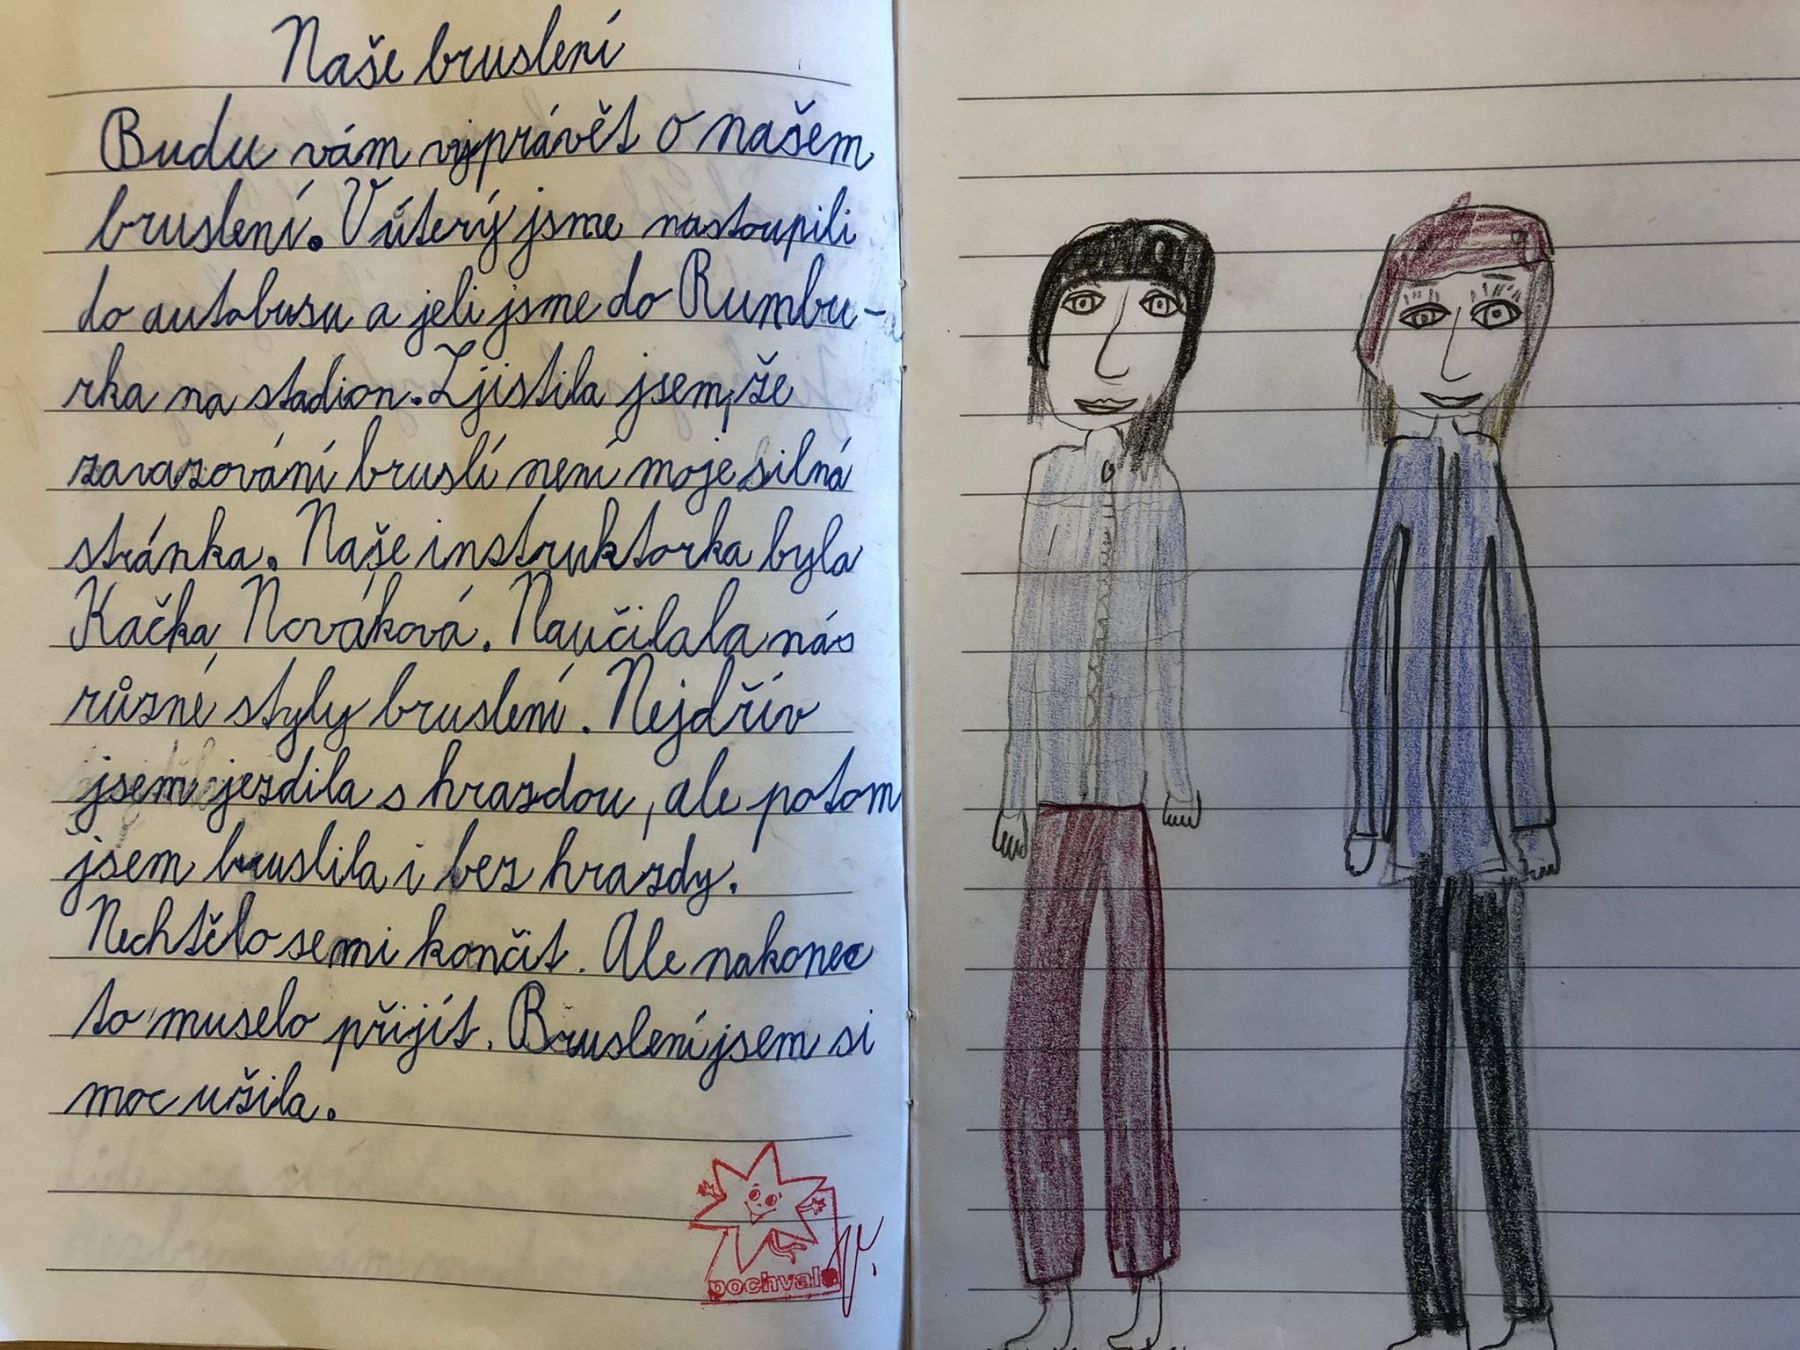 Naše bruslení
Budu vám vyprávět o našem
bruslení. V úterý jsme nastoupili
do autobusu a jeli jsme do Rumbu-
rka na stadion. Zjistila jsem, že
zavazování bruslí není moje silná
stránka. Naše instruktorka byla
Kačka Nováková. Naučilala nás
různé styly bruslení. Nejdřív
jsem jezdila s hrazdou, ale potom
jsem bruslila i bez hrazdy.
Nechtělo se mi končit. Ale nakonec
to muselo přijít. Bruslení jsem si
moc užila.
pochvala